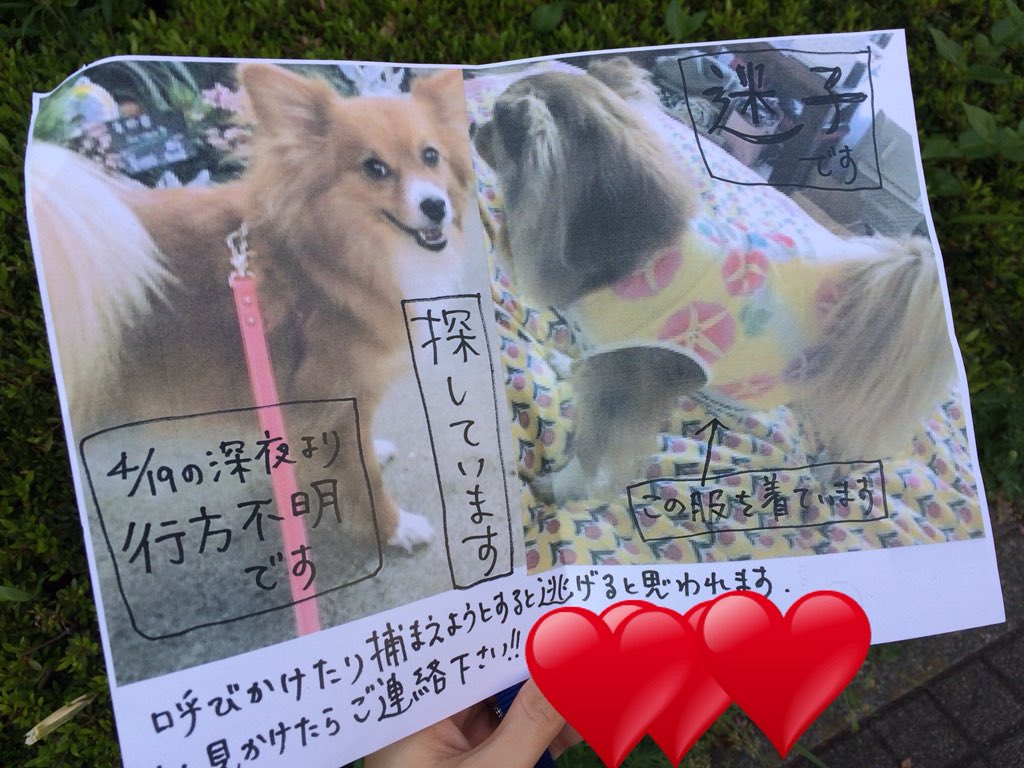 迷子
です
探しています
4/19の深夜より
行方不明
です
この服を着ています
呼びかけたり捕まえようとすると逃げると思われます.
見かけたらご連絡下さい!!